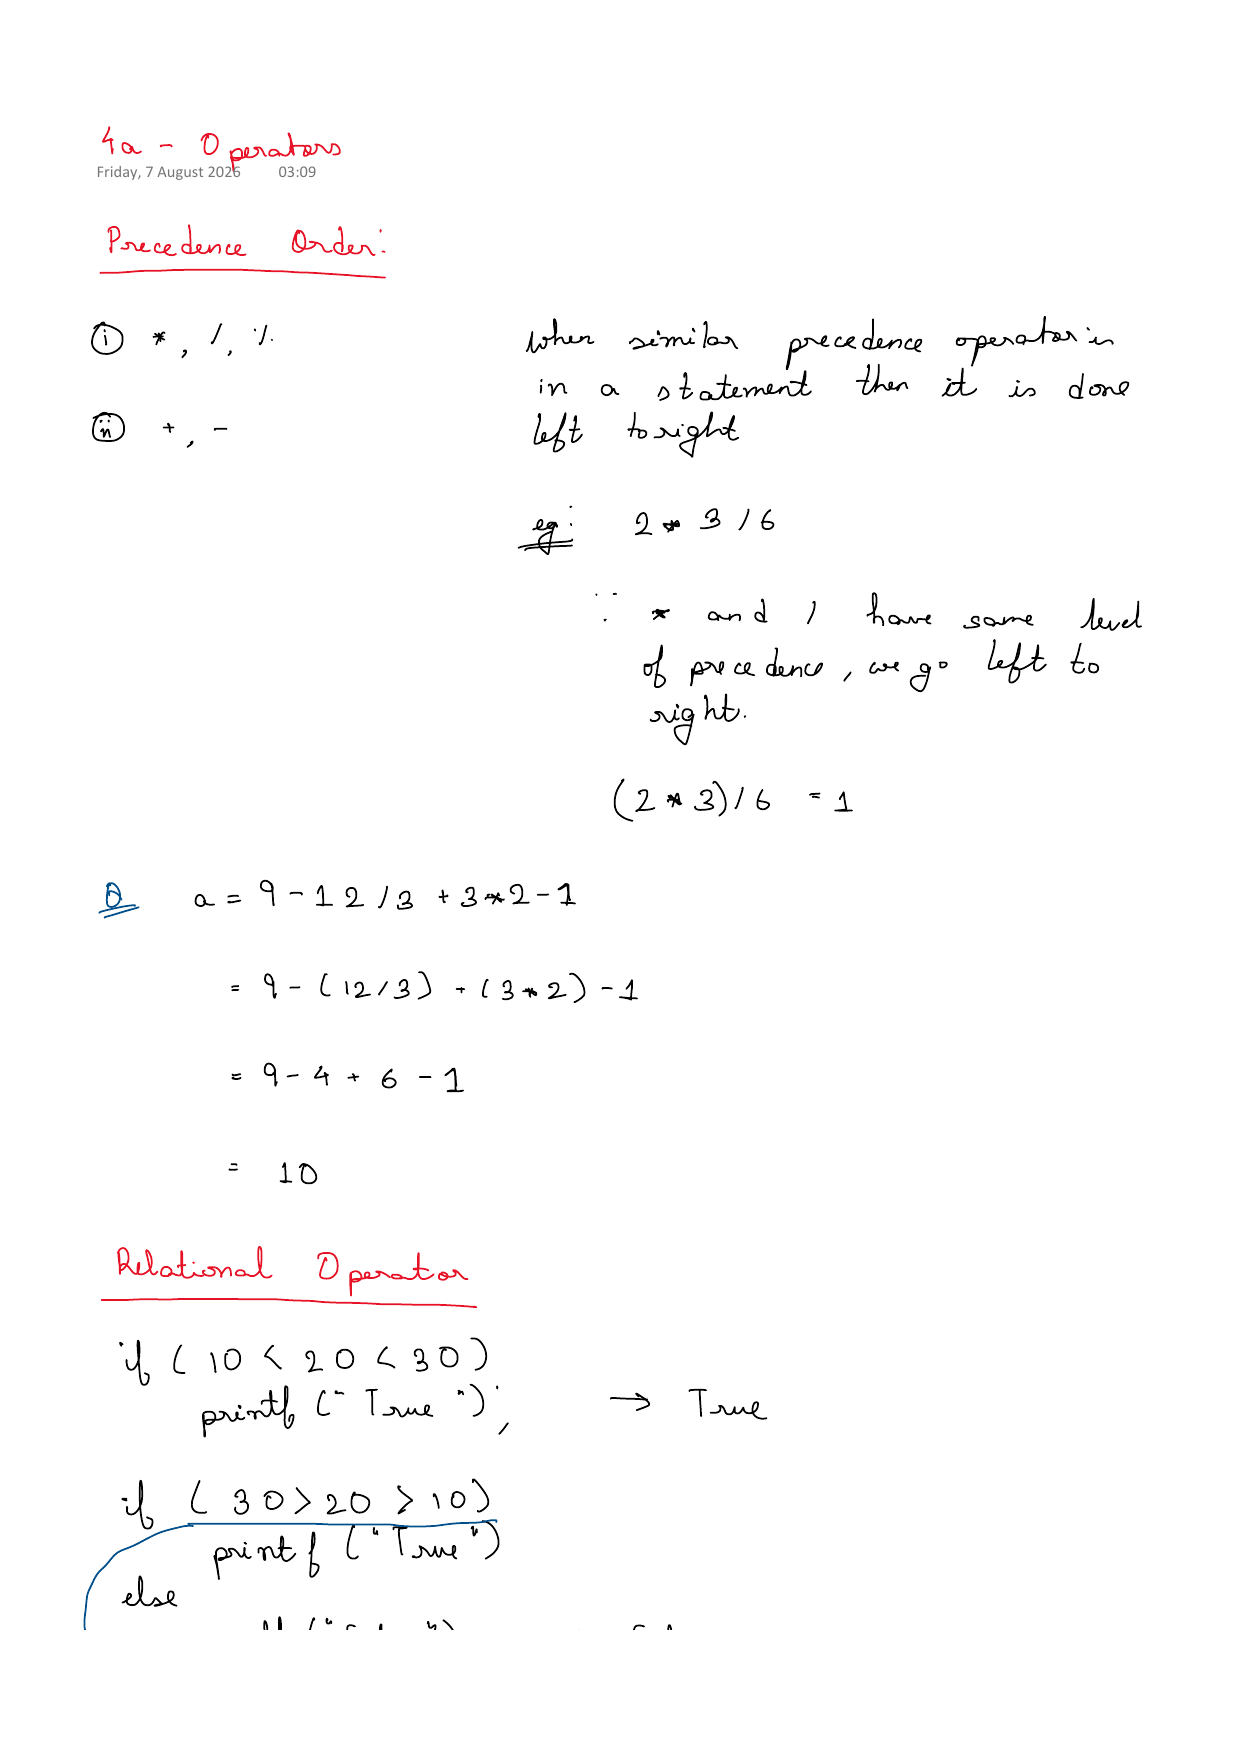 4a - Operators
Friday, 7 August 2026 03:09
Precedence Order:
(i) *, /, %
(ii) +, -
When similar precedence operator is
in a statement then it is done
left to right
eg: 2 * 3 / 6
∵ * and / have same level
of precedence, we go left to
right.
(2 * 3) / 6 = 1
Q a = 9 - 12 / 3 + 3 * 2 - 1
= 9 - (12 / 3) + (3 * 2) - 1
= 9 - 4 + 6 - 1
= 10
Relational Operator
if ( 10 < 20 < 30 )
printf (" True "); → True
if ( 30 > 20 > 10 )
printf ("True")
else